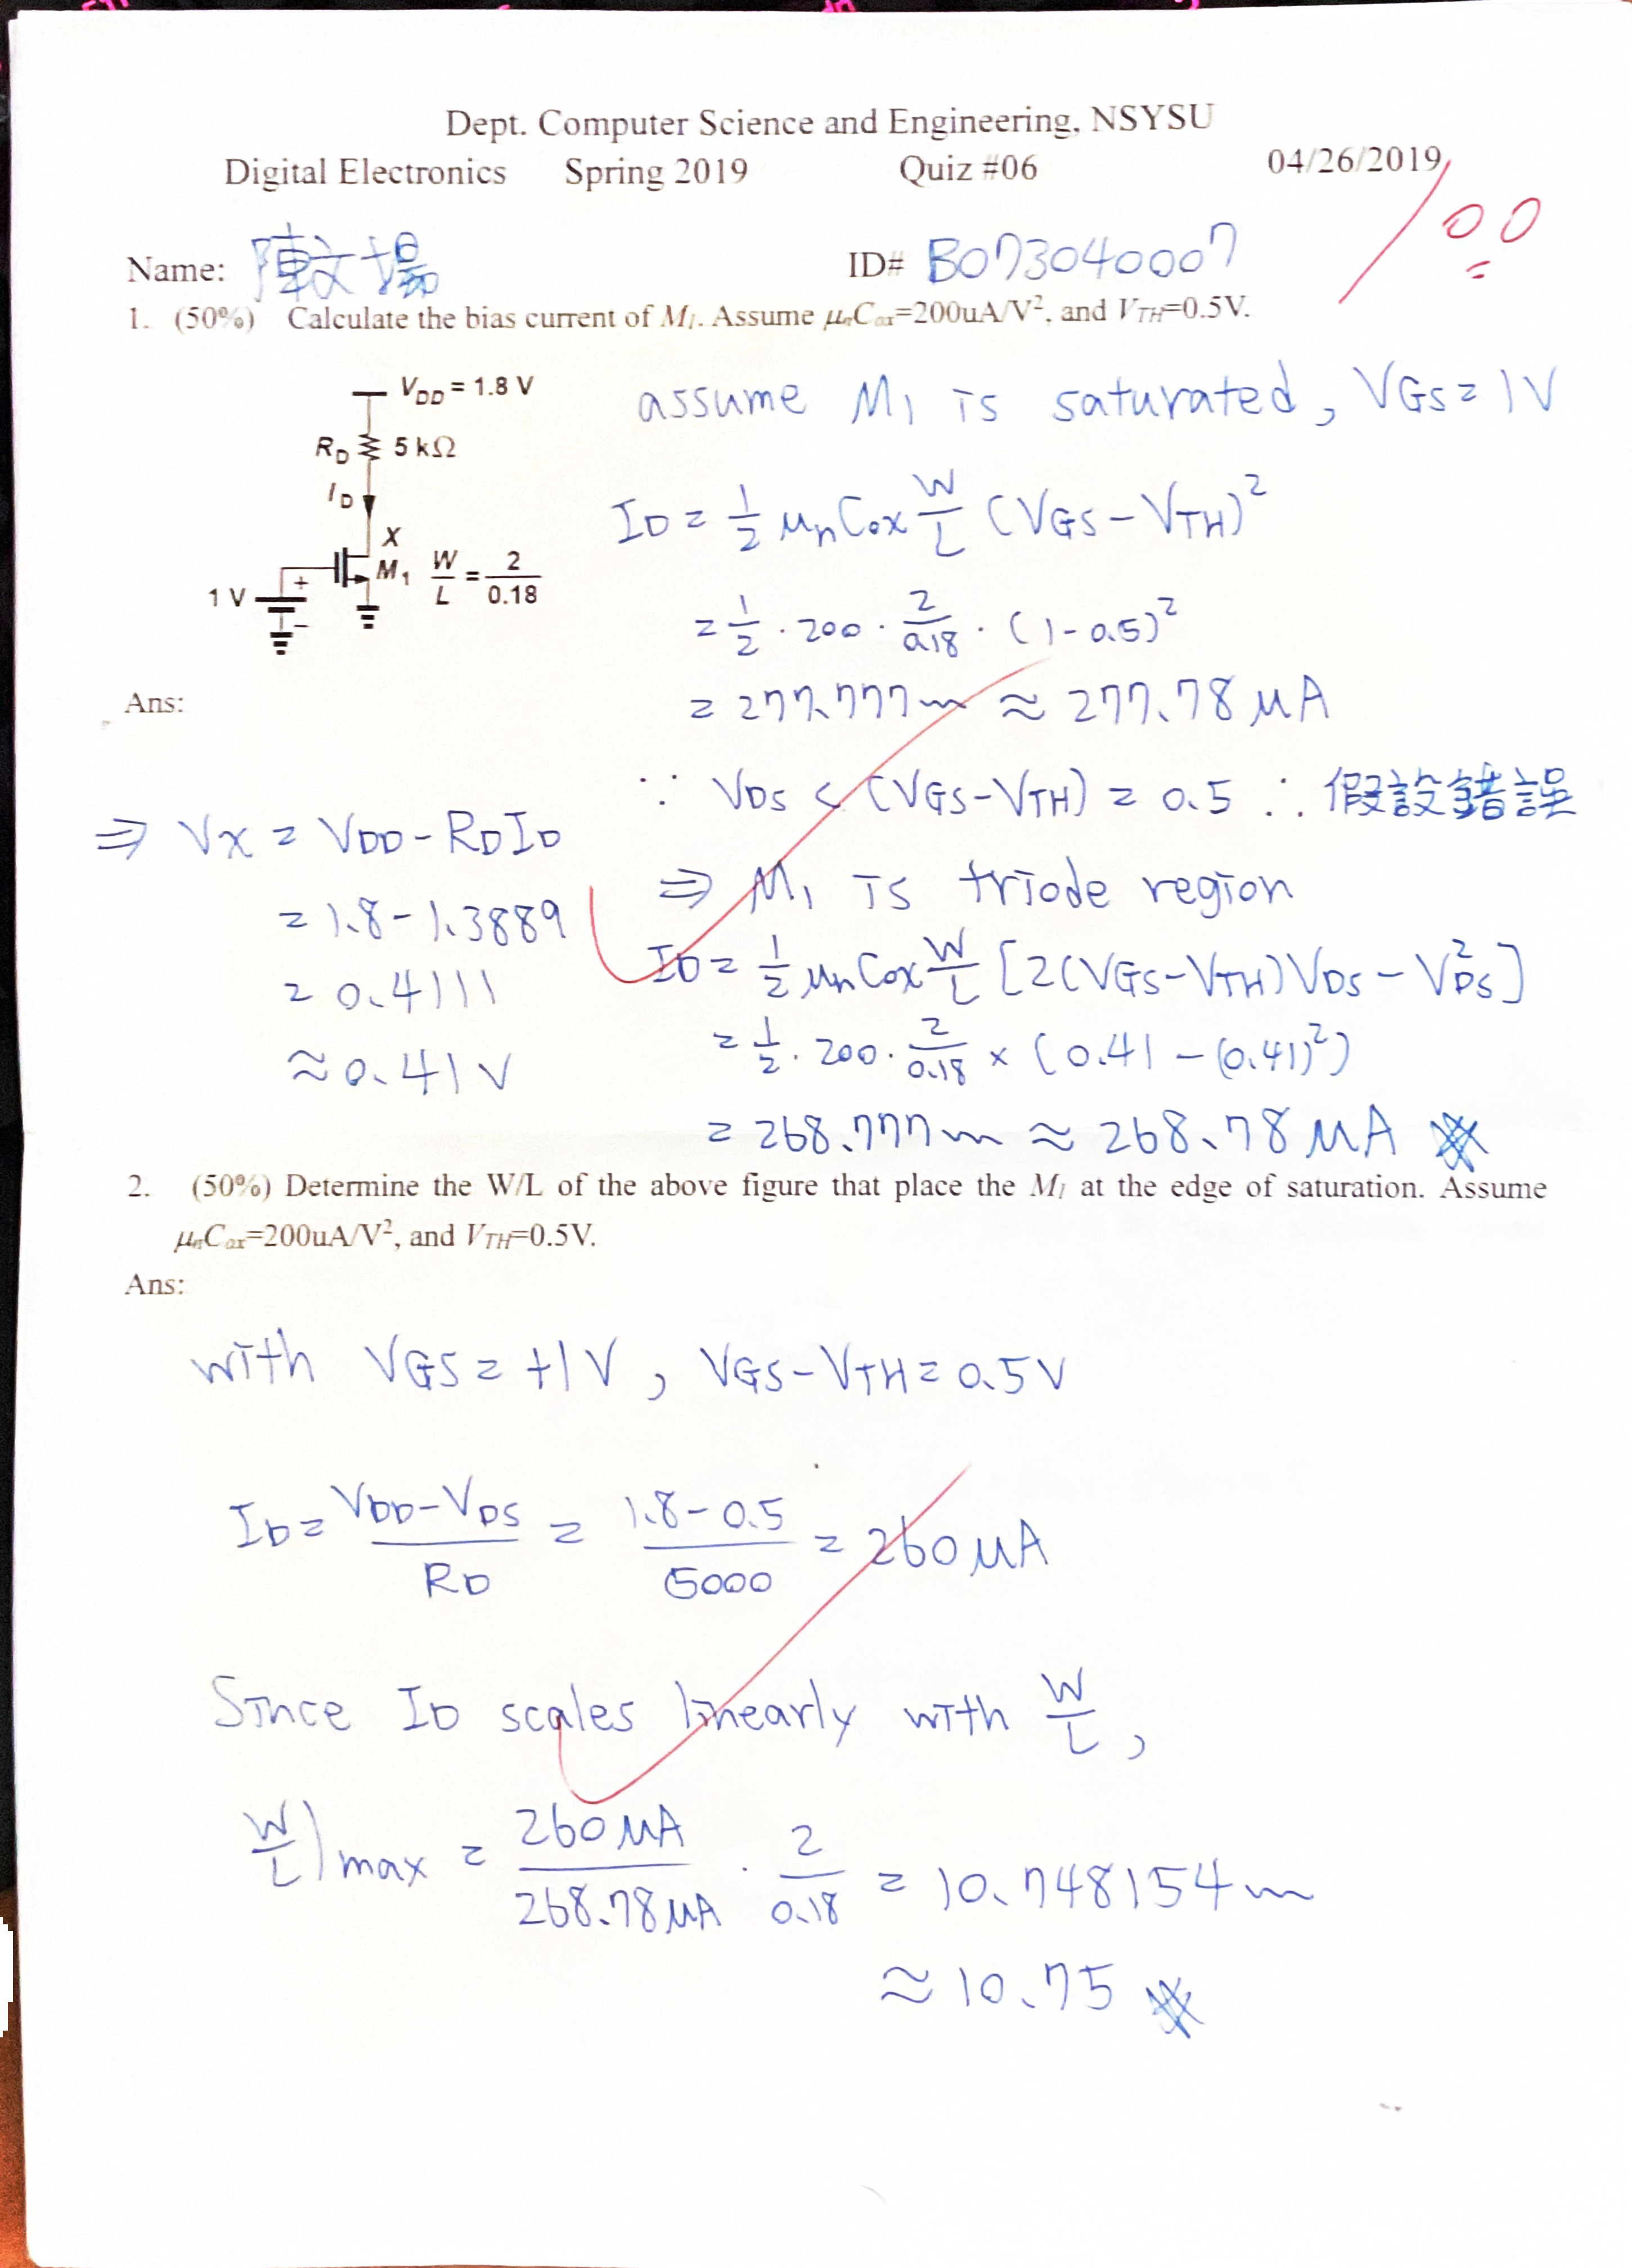 Dept. Computer Science and Engineering, NSYSU
Digital Electronics Spring 2019 Quiz #06 04/26/2019
100
Name: 陳文揚 ID# B073040007
1. (50%) Calculate the bias current of M₁. Assume μₙCₒₓ=200uA/V², and V_TH=0.5V.
V_DD = 1.8 V
R_D 5 kΩ
I_D
X
M₁ W/L = 2/0.18
1 V + −
assume M₁ is saturated, VGS = 1V
ID = 1/2 μnCox W/L (VGS − VTH)²
= 1/2 · 200 · 2/0.18 · (1 − 0.5)²
= 277.777~ ≈ 277.78 μA
Ans:
⇒ VX = VDD − RDID
= 1.8 − 1.3889
= 0.4111
≈ 0.41 V
∵ VDS < (VGS − VTH) = 0.5 ∴ 假設錯誤
⇒ M₁ is triode region
ID = 1/2 μnCox W/L [2(VGS − VTH)VDS − V²DS]
= 1/2 · 200 · 2/0.18 × (0.41 − (0.41)²)
= 268.777~ ≈ 268.78 μA ※
2. (50%) Determine the W/L of the above figure that place the M₁ at the edge of saturation. Assume
μₙCₒₓ=200uA/V², and V_TH=0.5V.
Ans:
with VGS = +1V, VGS − VTH = 0.5V
ID = (VDD − VDS)/RD = (1.8 − 0.5)/5000 = 260 μA
Since ID scales linearly with W/L,
W/L)max = 260 μA/268.78 μA · 2/0.18 = 10.748154~
≈ 10.75 ※